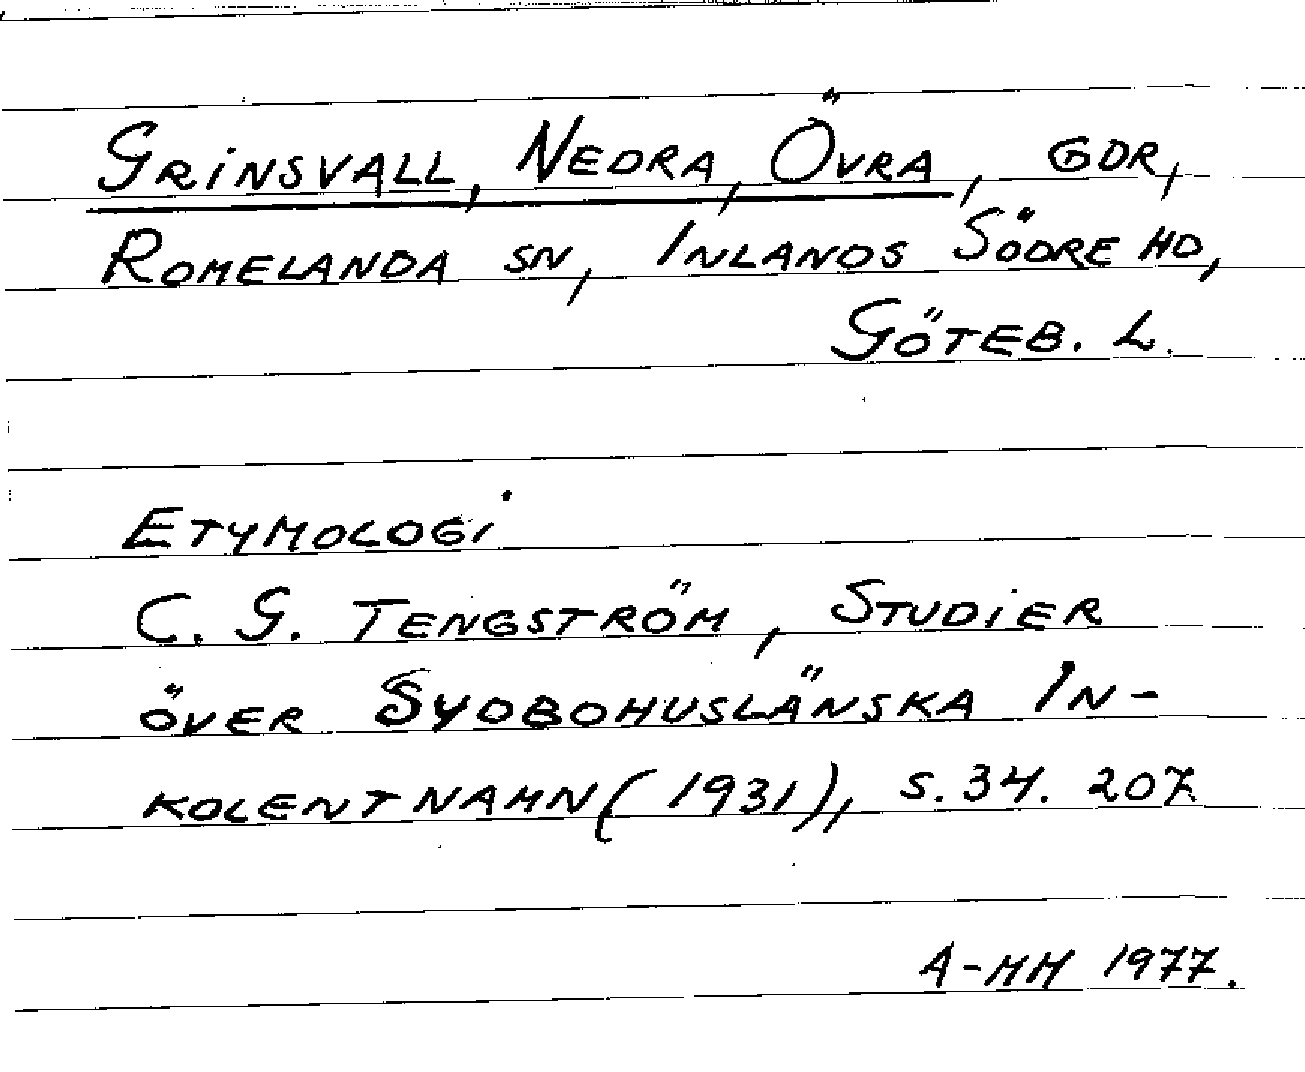 GRINSVALL, NEDRA, ÖVRA, GDR,
ROMELANDA SN, INLANDS SÖDRE HD,
GÖTEB. L.
ETYMOLOGI
C. G. TENGSTRÖM, STUDIER
ÖVER SYDBOHUSLÄNSKA IN-
KOLENTNAMN (1931), S. 34. 207
A-MM 1977.